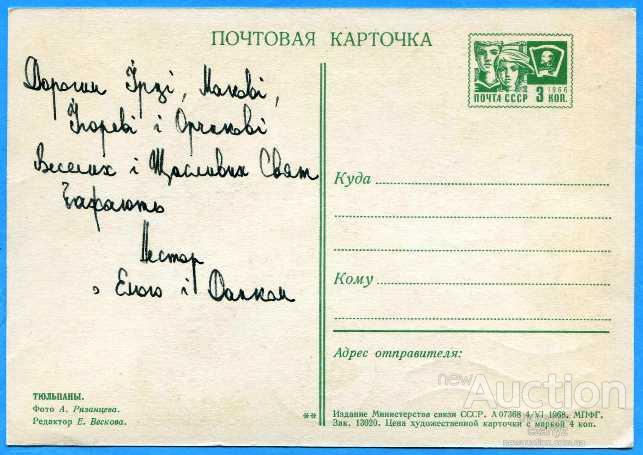 ПОЧТОВАЯ КАРТОЧКА
Дорогим Ірзі, Макові,
Ігореві і Орчикові
Веселих і Щасливих Свят
бажають
Нестор
з Елою і
ПОЧТА СССР 3 КОП.
1966
Куда
Кому
Адрес отправителя:
ТЮЛЬПАНЫ.
Фото А. Рязанцева.
Редактор Е. Вескова.
**
Издание Министерства связи СССР. А 07368 4/VI 1968. МПФГ.
Зак. 13020. Цена художественной карточки с маркой 4 коп.
newAuction
newauction.com.ua